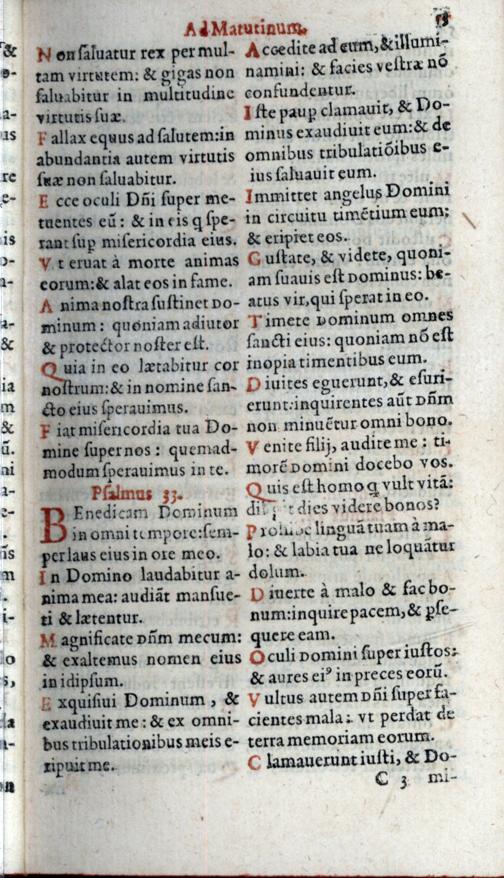 Ad Matutinum.
Non saluatur rex per mul-
tam virtutem: & gigas non
saluabitur in multitudine
virtutis suæ.
Fallax equus ad salutem: in
abundantia autem virtutis
suæ non saluabitur.
Ecce oculi Dñi super me-
tuentes eũ: & in eis q spe-
rant sup misericordia eius.
Vt eruat à morte animas
eorum: & alat eos in fame.
Anima nostra sustinet Do-
minum: quoniam adiutor
& protector noster est.
Quia in eo lætabitur cor
nostrum: & in nomine san-
cto eius sperauimus.
Fiat misericordia tua Do-
mine super nos: quemad-
modum sperauimus in te.
Psalmus 33.
BEnedicam Dominum
in omni tempore: sem-
per laus eius in ore meo.
In Domino laudabitur a-
nima mea: audiāt mansue-
ti & lætentur.
Magnificate Dñm mecum:
& exaltemus nomen eius
in idipsum.
Exquisiui Dominum, &
exaudiuit me: & ex omni-
bus tribulationibus meis e-
ripuit me.
Accedite ad eum, & illumi-
namini: & facies vestræ nõ
confundentur.
Iste paup clamauit, & Do-
minus exaudiuit eum: & de
omnibus tribulatiõibus e-
ius saluauit eum.
Immittet angelus Domini
in circuitu timẽtium eum:
& eripiet eos.
Gustate, & videte, quoni-
am suauis est Dominus: be-
atus vir, qui sperat in eo.
Timete Dominum omnes
sancti eius: quoniam nõ est
inopia timentibus eum.
Diuites eguerunt, & esuri-
erunt: inquirentes aũt Dñm
non minuẽtur omni bono.
Venite filij, audite me: ti-
morẽ Domini docebo vos.
Quis est homo q vult vitã:
dies videre bonos?
Prohibe linguã tuam à ma-
lo: & labia tua ne loquãtur
dolum.
Diuerte à malo & fac bo-
num: inquire pacem, & ꝑse-
quere eam.
Oculi Domini super iustos:
& aures eiꝰ in preces eorũ.
Vultus autem Dñi super fa-
cientes mala: vt perdat de
terra memoriam eorum.
Clamauerunt iusti, & Do-
C 3 mi-